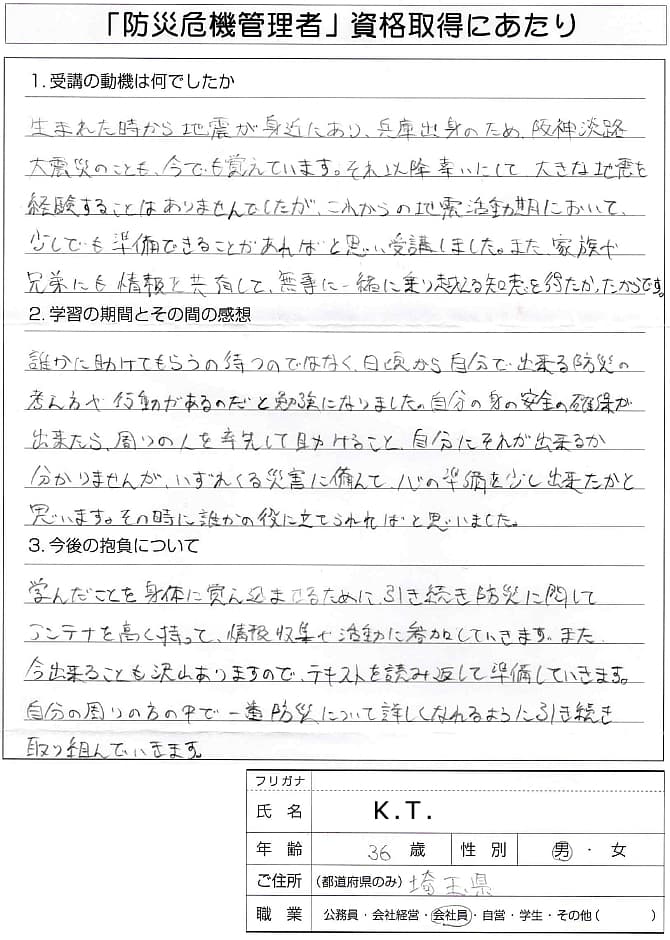 「防災危機管理者」資格取得にあたり
1.受講の動機は何でしたか
生まれた時から地震が身近にあり、兵庫出身のため、阪神淡路
大震災のことも、今でも覚えています。それ以降幸いにして、大きな地震を
経験することはありませんでしたが、これからの地震活動期において、
少しでも準備できることがあればと思い受講しました。また、家族や
兄弟にも情報を共有して、無事に一緒に乗り越える知恵を得たかったからです。
2.学習の期間とその間の感想
誰かに助けてもらうの待つのではなく、日頃から自分で出来る防災の
考え方や行動があるのだと勉強になりました。自分の身の安全の確保が
出来たら、周りの人を率先して助けること、自分にそれが出来るか
分かりませんが、いずれくる災害に備えて、心の準備を少し出来たかと
思います。その時に誰かの役に立てられればと思いました。
3.今後の抱負について
学んだことを身体に覚え込ませるために、引き続き防災に関して
アンテナを高く持って、情報収集や活動に参加していきます。また、
今出来ることも沢山ありますので、テキストを読み返して準備していきます。
自分の周りの方の中で一番防災について詳しくなれるように引き続き
取り組んでいきます。
フリガナ
氏名 K.T.
年齢 36 歳 性別 男・女
ご住所 (都道府県のみ) 埼玉県
職業 公務員・会社経営・会社員・自営・学生・その他( )